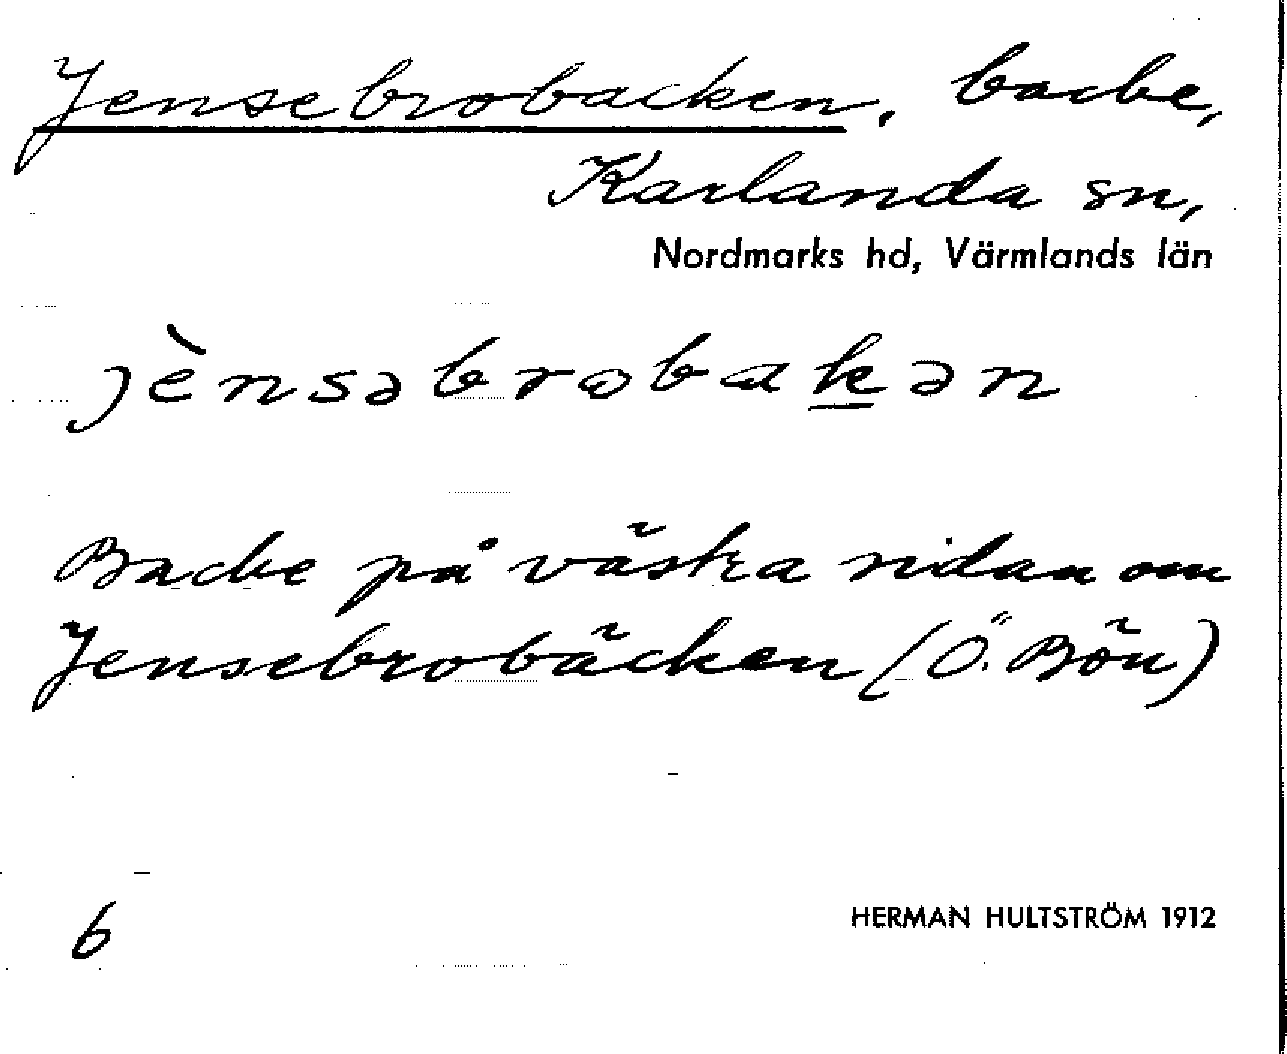 Jensebrobacken, backe,
Karlanda sn,
Nordmarks hd, Värmlands län
jènsəbrobakən
Backe på västra sidan om
Jensebrobäcken (Ö. Bön)
6
HERMAN HULTSTRÖM 1912